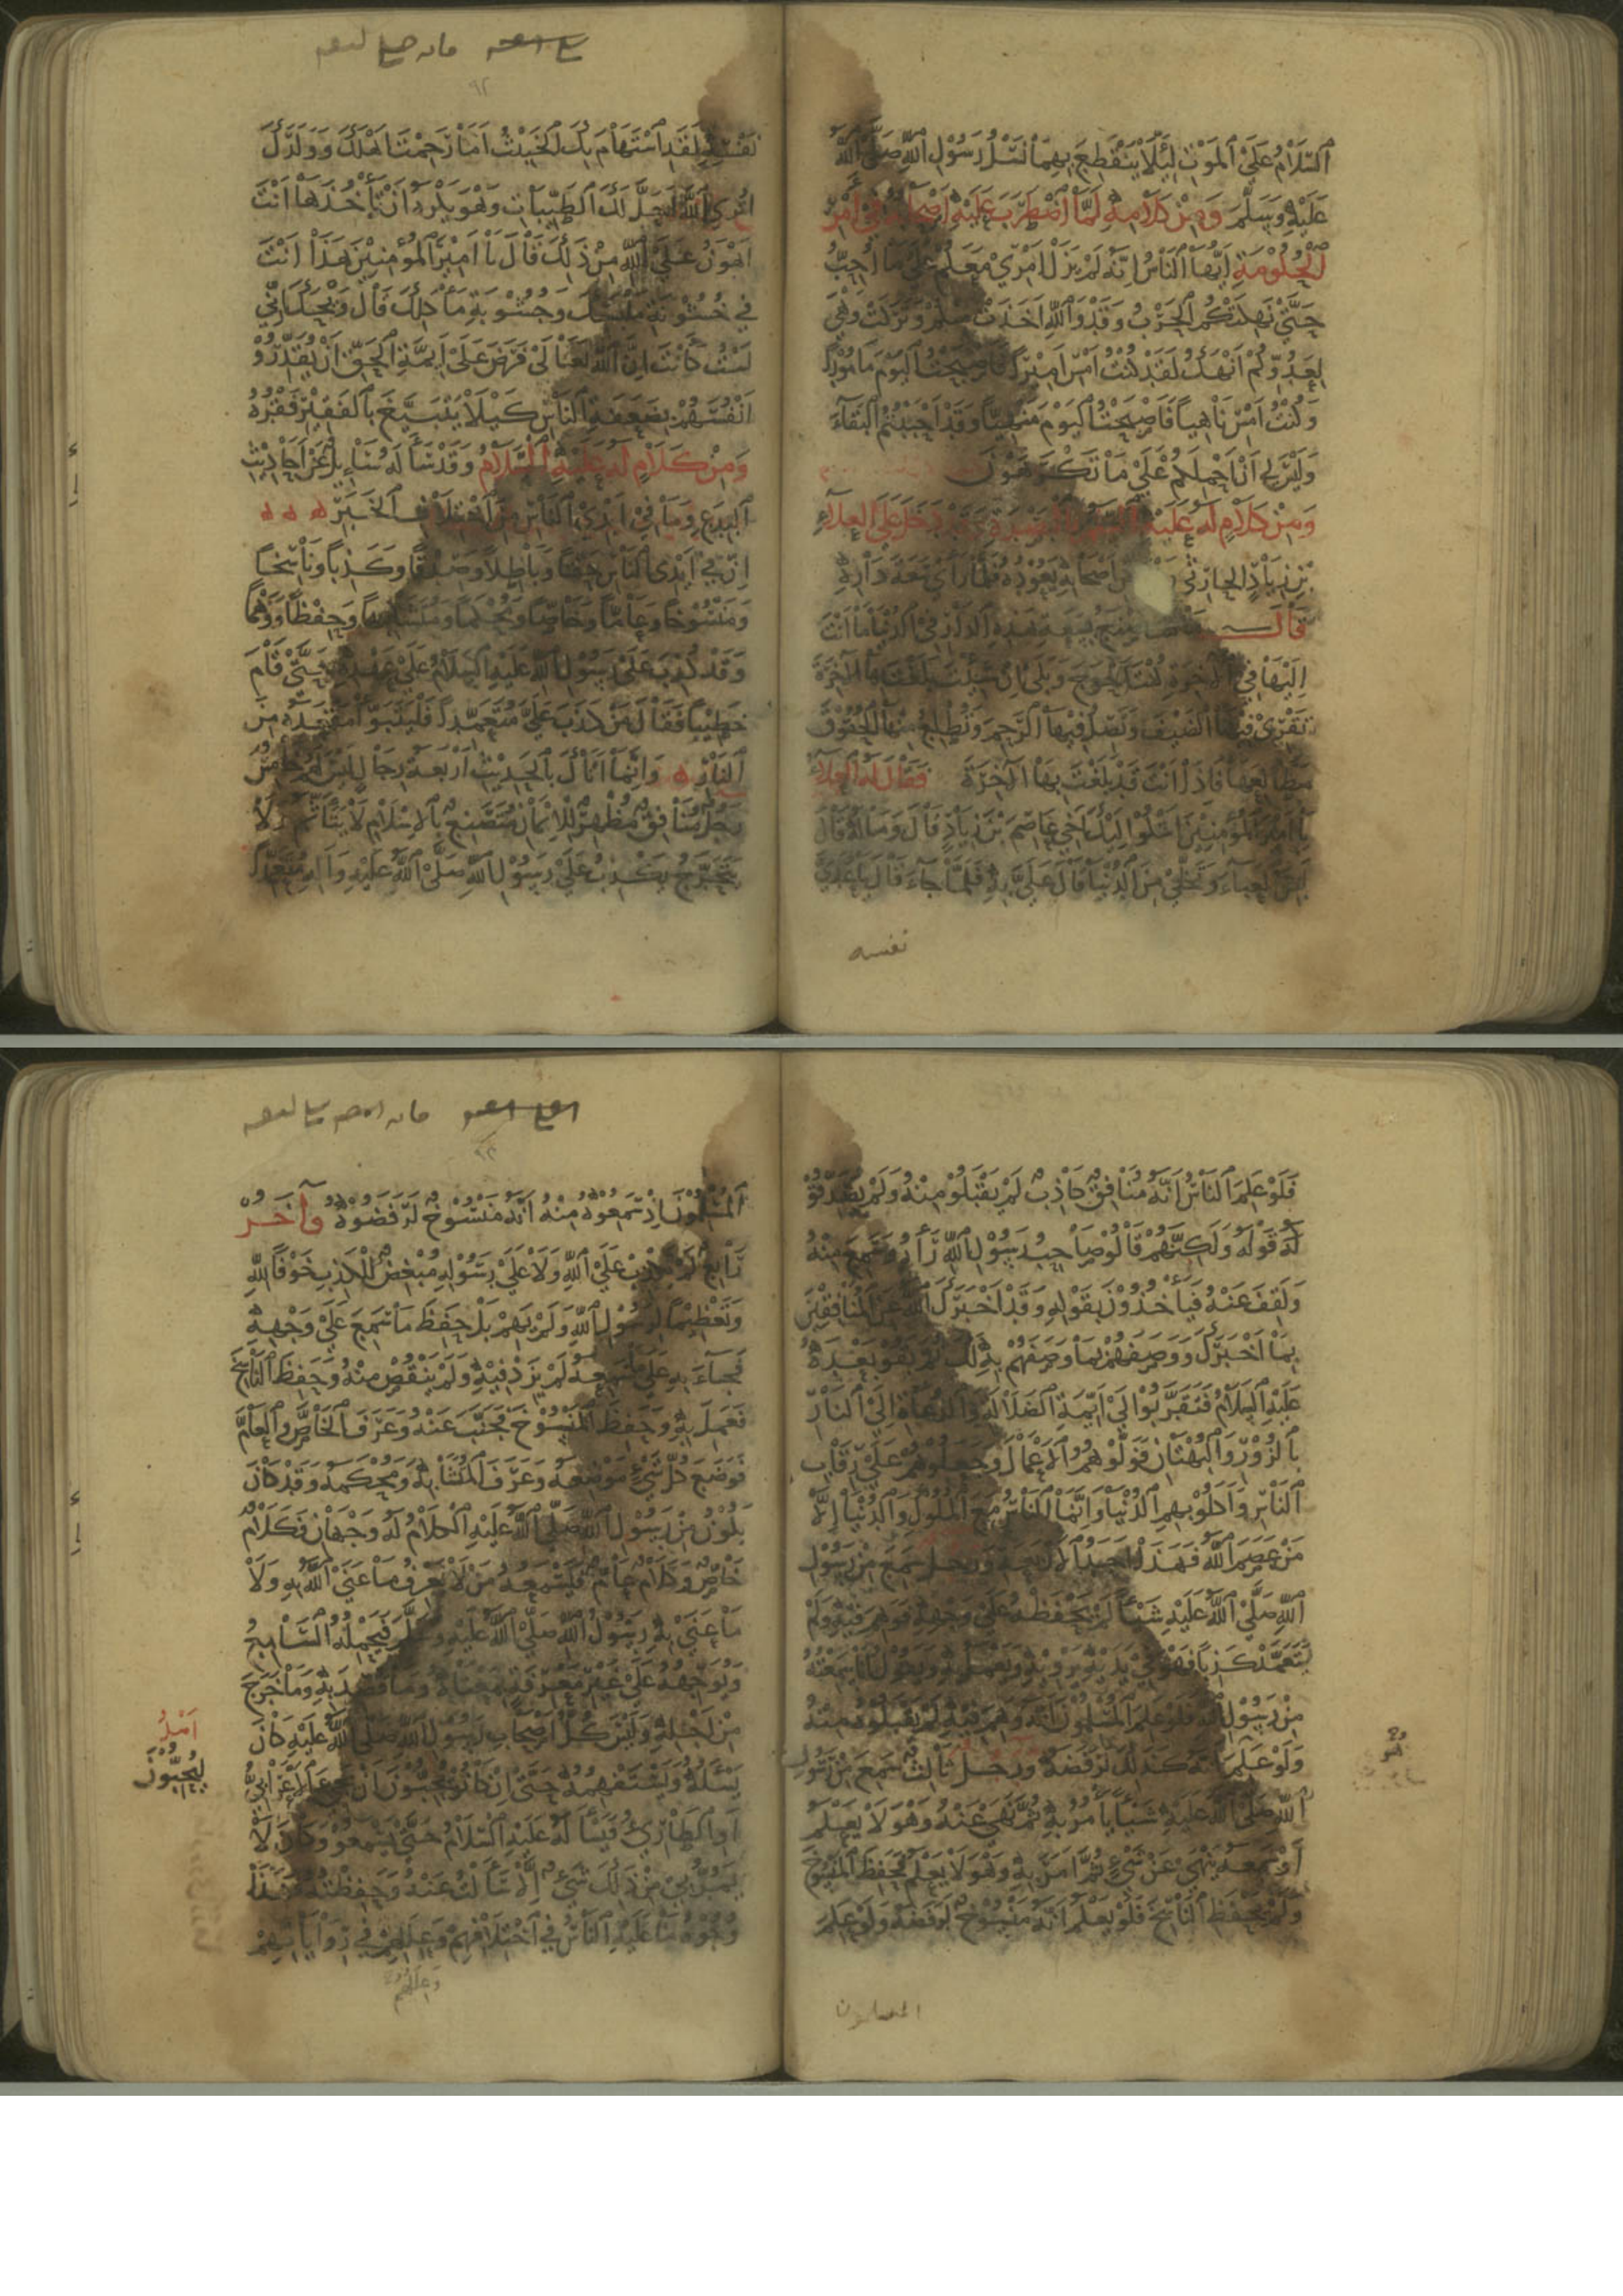 اَلسَّلَامُ عَلَى الْمَوْتِ لِئَلَّا يَنْقَطِعَ بِهِمَا نَسْلُ رَسُوْلِ اللهِ صَلَّى اللهُ
عَلَيْهِ وَسَلَّمَ وَمِنْ كَلَامِهِ لَمَّا اضْطَرَبَ عَلَيْهِ اَصْحَابُهُ فِي اَمْرِ
الْحُكُوْمَةِ اَيُّهَا النَّاسُ اِنَّهُ لَمْ يَزَلْ اَمْرِي مَعَكُمْ عَلَى مَا اُحِبُّ
حَتَّى نَهِكَتْكُمُ الْحَرْبُ وَقَدْ وَاللهِ اَخَذَتْ مِنْكُمْ وَتَرَكَتْ وَهِيَ
لِعَدُوِّكُمْ اَنْهَكُ لَقَدْ كُنْتُ اَمْسِ اَمِيْراً فَاَصْبَحْتُ الْيَوْمَ مَأْمُوْراً
وَكُنْتُ اَمْسِ نَاهِياً فَاَصْبَحْتُ الْيَوْمَ مَنْهِيّاً وَقَدْ اَحْبَبْتُمُ الْبَقَاءَ
وَلَيْسَ لِي اَنْ اَحْمِلَكُمْ عَلَى مَا تَكْرَهُوْنَ
وَمِنْ كَلَامٍ لَهُ عَلَيْهِ السَّلَامُ بِالْبَصْرَةِ وَقَدْ دَخَلَ عَلَى الْعَلَاءِ
بْنِ زِيَادٍ الْحَارِثِيِّ مِنْ اَصْحَابِهِ يَعُوْدُهُ فَلَمَّا رَاَى سَعَةَ دَارِهِ
قَالَ مَا كُنْتَ تَصْنَعُ بِسَعَةِ هَذِهِ الدَّارِ فِي الدُّنْيَا مَا اَنْتَ
اِلَيْهَا فِي الْآخِرَةِ كُنْتَ اَحْوَجَ وَبَلَى اِنْ شِئْتَ بَلَغْتَ بِهَا الْآخِرَةَ
تَقْرِي فِيْهَا الضَّيْفَ وَتَصِلُ فِيْهَا الرَّحِمَ وَتُطْلِعُ مِنْهَا الْحُقُوْقَ
مَطَالِعَهَا فَاِذاً اَنْتَ قَدْ بَلَغْتَ بِهَا الْآخِرَةَ فَقَالَ لَهُ الْعَلَاءُ
يَا اَمِيْرَ الْمُؤْمِنِيْنَ اَشْكُو اِلَيْكَ اَخِي عَاصِمَ بْنَ زِيَادٍ قَالَ وَمَا لَهُ قَالَ
لَبِسَ الْعَبَاءَ وَتَخَلَّى مِنَ الدُّنْيَا قَالَ عَلَيَّ بِهِ فَلَمَّا جَاءَ قَالَ يَا عُدَيَّ
نفسه
٩٢
نَفْسِهِ لَقَدِ اسْتَهَامَ بِكَ الْخَبِيْثُ اَمَا رَحِمْتَ اَهْلَكَ وَوَلَدَكَ
اَتُرَى اللهَ اَحَلَّ لَكَ الطَّيِّبَاتِ وَهُوَ يَكْرَهُ اَنْ تَأْخُذَهَا اَنْتَ
اَهْوَنُ عَلَى اللهِ مِنْ ذَلِكَ قَالَ يَا اَمِيْرَ الْمُؤْمِنِيْنَ هَذَا اَنْتَ
فِي خُشُوْنَةِ مَلْبَسِكَ وَجُشُوْبَةِ مَأْكَلِكَ قَالَ وَيْحَكَ اِنِّي
لَسْتُ كَاَنْتَ اِنَّ اللهَ تَعَالَى فَرَضَ عَلَى اَئِمَّةِ الْحَقِّ اَنْ يُقَدِّرُوْا
اَنْفُسَهُمْ بِضَعَفَةِ النَّاسِ كَيْلَا يَتَبَيَّغَ بِالْفَقِيْرِ فَقْرُهُ
وَمِنْ كَلَامٍ لَهُ عَلَيْهِ السَّلَامُ وَقَدْ سَأَلَهُ سَائِلٌ عَنْ اَحَادِيْثِ
الْبِدَعِ وَمَا فِي اَيْدِي النَّاسِ مِنْ اخْتِلَافِ الْخَبَرِ
اِنَّ فِي اَيْدِي النَّاسِ حَقّاً وَبَاطِلاً وَصِدْقاً وَكَذِباً وَنَاسِخاً
وَمَنْسُوْخاً وَعَامّاً وَخَاصّاً وَمُحْكَماً وَمُتَشَابِهاً وَحِفْظاً وَوَهْماً
وَقَدْ كُذِبَ عَلَى رَسُوْلِ اللهِ عَلَيْهِ السَّلَامُ عَلَى عَهْدِهِ حَتَّى قَامَ
خَطِيْباً فَقَالَ مَنْ كَذَبَ عَلَيَّ مُتَعَمِّداً فَلْيَتَبَوَّأْ مَقْعَدَهُ مِنَ
النَّارِ وَاِنَّمَا اَتَاكَ بِالْحَدِيْثِ اَرْبَعَةُ رِجَالٍ لَيْسَ لَهُمْ خَامِسٌ
رَجُلٌ مُنَافِقٌ مُظْهِرٌ لِلْاِيْمَانِ مُتَصَنِّعٌ بِالْاِسْلَامِ لَا يَتَأَثَّمُ وَلَا
يَتَحَرَّجُ يَكْذِبُ عَلَى رَسُوْلِ اللهِ صَلَّى اللهُ عَلَيْهِ وَآلِهِ مُتَعَمِّداً
فَلَوْ عَلِمَ النَّاسُ اَنَّهُ مُنَافِقٌ كَاذِبٌ لَمْ يَقْبَلُوْا مِنْهُ وَلَمْ يُصَدِّقُوْا
لَهُ قَوْلَهُ وَلَكِنَّهُمْ قَالُوْا صَاحِبُ رَسُوْلِ اللهِ رَآهُ وَسَمِعَ مِنْهُ
وَلَقِفَ عَنْهُ فَيَأْخُذُوْنَ بِقَوْلِهِ وَقَدْ اَخْبَرَكَ اللهُ عَنِ الْمُنَافِقِيْنَ
بِمَا اَخْبَرَكَ وَوَصَفَهُمْ بِمَا وَصَفَهُمْ بِهِ لَكَ ثُمَّ بَقُوْا بَعْدَهُ
عَلَيْهِ السَّلَامُ فَتَقَرَّبُوْا اِلَى اَئِمَّةِ الضَّلَالَةِ وَالدُّعَاةِ اِلَى النَّارِ
بِالزُّوْرِ وَالْبُهْتَانِ فَوَلَّوْهُمُ الْاَعْمَالَ وَجَعَلُوْهُمْ عَلَى رِقَابِ
النَّاسِ وَاَكَلُوْا بِهِمُ الدُّنْيَا وَاِنَّمَا النَّاسُ مَعَ الْمُلُوْكِ وَالدُّنْيَا اِلَّا
مَنْ عَصَمَ اللهُ فَهَذَا اَحَدُ الْاَرْبَعَةِ وَرَجُلٌ سَمِعَ مِنْ رَسُوْلِ
اللهِ صَلَّى اللهُ عَلَيْهِ شَيْئاً لَمْ يَحْفَظْهُ عَلَى وَجْهِهِ فَوَهِمَ فِيْهِ وَلَمْ
يَتَعَمَّدْ كَذِباً فَهُوَ فِي يَدَيْهِ يَرْوِيْهِ وَيَعْمَلُ بِهِ وَيَقُوْلُ اَنَا سَمِعْتُهُ
مِنْ رَسُوْلِ اللهِ فَلَوْ عَلِمَ الْمُسْلِمُوْنَ اَنَّهُ وَهِمَ فِيْهِ لَمْ يَقْبَلُوْهُ مِنْهُ
وَلَوْ عَلِمَ اَنَّهُ كَذَلِكَ لَرَفَضَهُ وَرَجُلٌ ثَالِثٌ سَمِعَ مِنْ رَسُوْلِ
اللهِ صَلَّى اللهُ عَلَيْهِ شَيْئاً يَأْمُرُ بِهِ ثُمَّ نَهَى عَنْهُ وَهُوَ لَا يَعْلَمُ
اَوْ سَمِعَهُ يَنْهَى عَنْ شَيْءٍ ثُمَّ اَمَرَ بِهِ وَهُوَ لَا يَعْلَمُ فَحَفِظَ الْمَنْسُوْخَ
وَلَمْ يَحْفَظِ النَّاسِخَ فَلَوْ يَعْلَمُ اَنَّهُ مَنْسُوْخٌ لَرَفَضَهُ وَلَوْ عَلِمَ
المسلمون
٩٣
الْمُسْلِمُوْنَ اِذْ سَمِعُوْهُ مِنْهُ اَنَّهُ مَنْسُوْخٌ لَرَفَضُوْهُ وَآخَرُ
رَابِعٌ لَمْ يَكْذِبْ عَلَى اللهِ وَلَا عَلَى رَسُوْلِهِ مُبْغِضٌ لِلْكَذِبِ خَوْفاً لِلّٰهِ
وَتَعْظِيْماً لِرَسُوْلِ اللهِ وَلَمْ يَهِمْ بَلْ حَفِظَ مَا سَمِعَ عَلَى وَجْهِهِ
فَجَاءَ بِهِ عَلَى سَمْعِهِ لَمْ يَزِدْ فِيْهِ وَلَمْ يَنْقُصْ مِنْهُ وَحَفِظَ النَّاسِخَ
فَعَمِلَ بِهِ وَحَفِظَ الْمَنْسُوْخَ فَجَنَّبَ عَنْهُ وَعَرَفَ الْخَاصَّ وَالْعَامَّ
فَوَضَعَ كُلَّ شَيْءٍ مَوْضِعَهُ وَعَرَفَ الْمُتَشَابِهَ وَمُحْكَمَهُ وَقَدْ كَانَ
يَكُوْنُ مِنْ رَسُوْلِ اللهِ صَلَّى اللهُ عَلَيْهِ الْكَلَامُ لَهُ وَجْهَانِ فَكَلَامٌ
خَاصٌّ وَكَلَامٌ عَامٌّ فَيَسْمَعُهُ مَنْ لَا يَعْرِفُ مَا عَنَى اللهُ بِهِ وَلَا
مَا عَنَى بِهِ رَسُوْلُ اللهِ صَلَّى اللهُ عَلَيْهِ وَسَلَّمَ فَيَحْمِلُهُ السَّامِعُ
وَيُوَجِّهُهُ عَلَى غَيْرِ مَعْرِفَةٍ بِمَعْنَاهُ وَمَا قُصِدَ بِهِ وَمَا خَرَجَ
مِنْ اَجْلِهِ وَلَيْسَ كُلُّ اَصْحَابِ رَسُوْلِ اللهِ صَلَّى اللهُ عَلَيْهِ كَانَ
يَسْئَلُهُ وَيَسْتَفْهِمُهُ حَتَّى اِنْ كَانُوْا لَيُحِبُّوْنَ اَنْ يَجِيْءَ الْاَعْرَابِيُّ
اَوِ الطَّارِيُ فَيَسْأَلَهُ عَلَيْهِ السَّلَامُ حَتَّى يَسْمَعُوْا وَكَانَ لَا
يَمُرُّ بِي مِنْ ذَلِكَ شَيْءٌ اِلَّا سَأَلْتُ عَنْهُ وَحَفِظْتُهُ فَهَذَا
وُجُوْهُ مَا عَلَيْهِ النَّاسُ فِي اخْتِلَافِهِمْ وَعِلَلِهِمْ فِي رِوَايَاتِهِمْ
لَيُحِبُّوْنَ